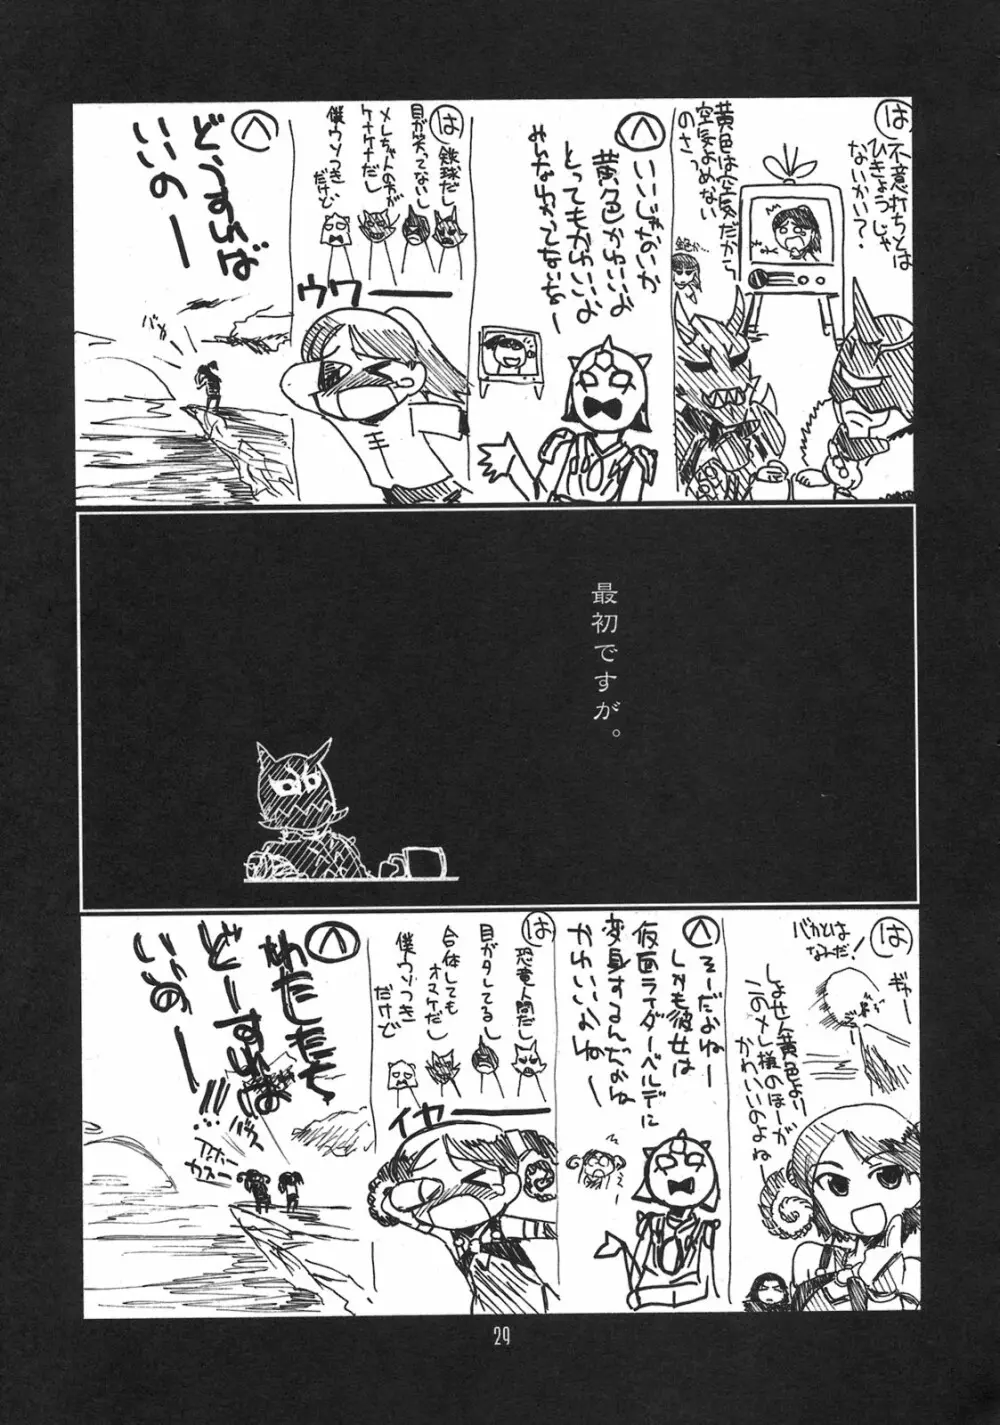 は
不意打ちとは
ひきょうじゃ
ないかい?
黄色は空気だから
空気よめない
のさ
金色か…
へ
いいじゃないか
黄色かわいいよ
とってもかわいいよ
みんなわかってないなー
は
鉄球だし
目が笑ってないし
メレちゃんの方が
ケナゲだし
僕ウソつき
だけど
ウワーーー
へ
どうすれば
いいのー
最初ですが。
は
バカとは
なんだ!
ギャー
しょせん黄色より
このメレ様のほーが
かわいいのよねー
へ
そーだよねー
しかも彼女は
仮面ライダーベルデに
変身するんだよね
かわいいよねー
は
恐竜人間だし
目がタレてるし
合体しても
オスケだし
僕ウソつき
だけど
イヤーーー
へ
わたしたち
どーすれば
いいのー
!!!
29